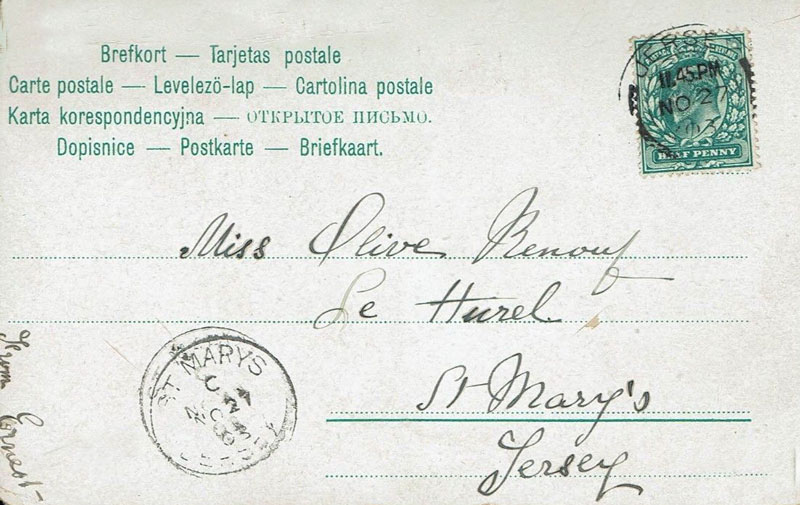 Brefkort — Tarjetas postale
Carte postale — Levelezö-lap — Cartolina postale
Karta korespondencyjna — ОТКРЫТОЕ ПИСЬМО.
Dopisnice — Postkarte — Briefkaart.
JERSE
11.45.PM
NO 27
HALF PENNY
Miss Olive Renouf
Le Hurel
St Mary's
Jersey
ST. MARYS
From Ernest